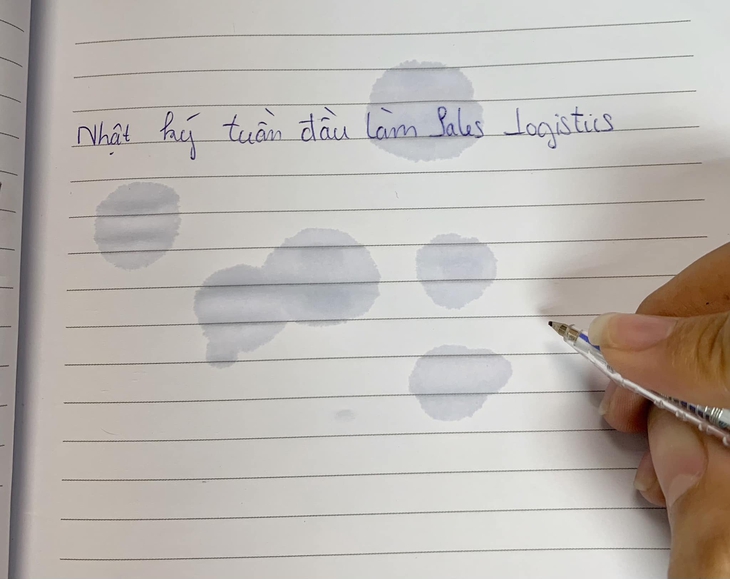 Nhật ký tuần đầu làm Sales Logistics